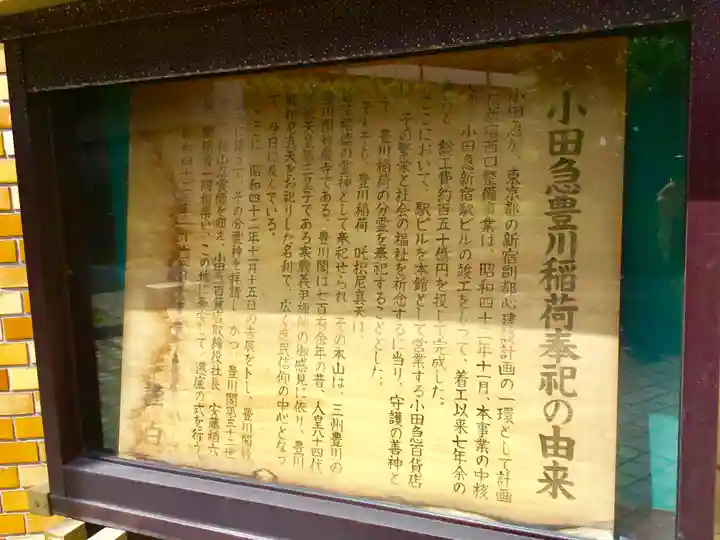 小田急豊川稲荷奉祀の由来
小田急が、東京都の新宿副都心建設計画の一環として計画
新宿西口整備事業は、昭和四十二年十一月、本事業の中核
小田急新宿駅ビルの竣工をもって、着工以来七年余の
総工費約百五十億円を投じて完成した。
ここにおいて、駅ビルを本館として営業する小田急百貨店
その繁栄と社会の福祉を祈念するに当り、守護の善神と
て、豊川稲荷の分霊を奉祀することとした。
そもそも、豊川稲荷 吒枳尼真天は、
福徳の霊神として奉祀せられ、その本山は、三州豊川の
豊川閣妙厳寺である。豊川閣は七百有余年の昔、人皇八十四代
順徳天皇第三皇子である寒巌義尹禅師の御感見に依り、豊川
枳尼真天をお祀りした名刹で、広く庶民信仰の中心となっ
て、今日に及んでいる。
ここに、昭和四十二年十一月十五日の吉辰を卜し、豊川閣妙
その分霊神を拝請し、かつ、豊川閣第三十二世
老師を迎え、小田急百貨店取締役社長 安藤楢六
関係者一同相集い、この地に奉安して、遷座の式を行う
昭和四十二年十一月
白